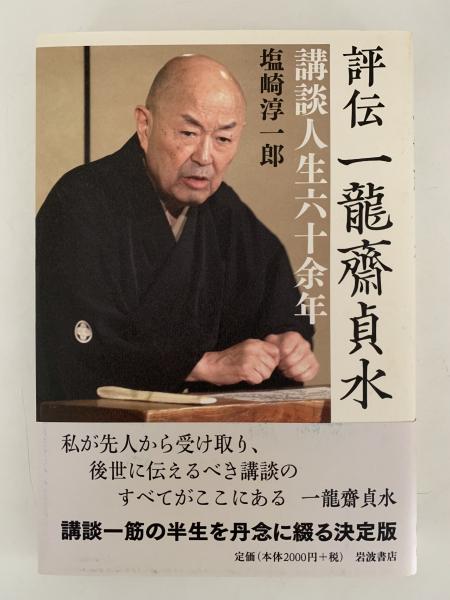 評伝 一龍齋貞水
講談人生六十余年
塩崎淳一郎
私が先人から受け取り、
後世に伝えるべき講談の
すべてがここにある 一龍齋貞水
講談一筋の半生を丹念に綴る決定版
定価(本体2000円+税) 岩波書店